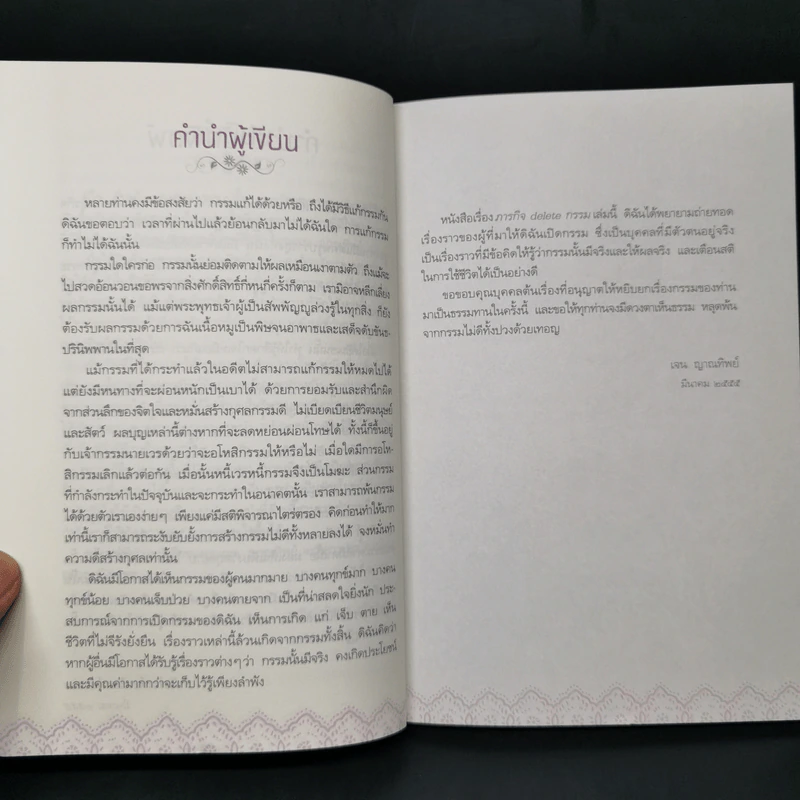 คำนำผู้เขียน
หลายท่านคงมีข้อสงสัยว่า กรรมแก้ได้ด้วยหรือ ถึงได้มีวิธีแก้กรรมกัน
ดิฉันขอตอบว่า เวลาที่ผ่านไปแล้วย้อนกลับมาไม่ได้ฉันใด การแก้กรรม
ก็ทำไม่ได้ฉันนั้น
กรรมใดใครก่อ กรรมนั้นย่อมติดตามให้ผลเหมือนเงาตามตัว ถึงแม้จะ
ไปสวดอ้อนวอนขอพรจากสิ่งศักดิ์สิทธิ์กี่หนกี่ครั้งก็ตาม เรามิอาจหลีกเลี่ยง
ผลกรรมนั้นได้ แม้แต่พระพุทธเจ้าผู้เป็นสัพพัญญูล่วงรู้ในทุกสิ่ง ก็ยัง
ต้องรับผลกรรมด้วยการฉันเนื้อหมูเป็นพิษจนอาพาธและเสด็จดับขันธ-
ปรินิพพานในที่สุด
แม้กรรมที่ได้กระทำแล้วในอดีตไม่สามารถแก้กรรมให้หมดไปได้
แต่ยังมีหนทางที่จะผ่อนหนักเป็นเบาได้ ด้วยการยอมรับและสำนึกผิด
จากส่วนลึกของจิตใจและหมั่นสร้างกุศลกรรมดี ไม่เบียดเบียนชีวิตมนุษย์
และสัตว์ ผลบุญเหล่านี้ต่างหากที่จะลดหย่อนผ่อนโทษได้ ทั้งนี้ก็ขึ้นอยู่
กับเจ้ากรรมนายเวรด้วยว่าจะอโหสิกรรมให้หรือไม่ เมื่อใดมีการอโห-
สิกรรมเลิกแล้วต่อกัน เมื่อนั้นหนี้เวรหนี้กรรมจึงเป็นโมฆะ ส่วนกรรม
ที่กำลังกระทำในปัจจุบันและจะกระทำในอนาคตนั้น เราสามารถพ้นกรรม
ได้ด้วยตัวเราเองง่ายๆ เพียงแค่มีสติพิจารณาไตร่ตรอง คิดก่อนทำให้มาก
เท่านี้เราก็สามารถระงับยับยั้งการสร้างกรรมไม่ดีทั้งหลายลงได้ จงหมั่นทำ
ความดีสร้างกุศลเท่านั้น
ดิฉันมีโอกาสได้เห็นกรรมของผู้คนมากมาย บางคนทุกข์มาก บางคน
ทุกข์น้อย บางคนเจ็บป่วย บางคนตายจาก เป็นที่น่าสลดใจยิ่งนัก ประ-
สบการณ์จากการเปิดกรรมของดิฉัน เห็นการเกิด แก่ เจ็บ ตาย เห็น
ชีวิตที่ไม่จีรังยั่งยืน เรื่องราวเหล่านี้ล้วนเกิดจากกรรมทั้งสิ้น ดิฉันคิดว่า
หากผู้อื่นมีโอกาสได้รับรู้เรื่องราวต่างๆว่า กรรมนั้นมีจริง คงเกิดประโยชน์
และมีคุณค่ามากกว่าจะเก็บไว้รู้เพียงลำพัง
หนังสือเรื่อง ภารกิจ delete กรรม เล่มนี้ ดิฉันได้พยายามถ่ายทอด
เรื่องราวของผู้ที่มาให้ดิฉันเปิดกรรม ซึ่งเป็นบุคคลที่มีตัวตนอยู่จริง
เป็นเรื่องราวที่มีข้อคิดให้รู้ว่ากรรมนั้นมีจริงและให้ผลจริง และเตือนสติ
ในการใช้ชีวิตได้เป็นอย่างดี
ขอขอบคุณบุคคลต้นเรื่องที่อนุญาตให้หยิบยกเรื่องกรรมของท่าน
มาเป็นธรรมทานในครั้งนี้ และขอให้ทุกท่านจงมีดวงตาเห็นธรรม หลุดพ้น
จากกรรมไม่ดีทั้งปวงด้วยเทอญ
เจน ญาณทิพย์
มีนาคม ๒๕๕๕